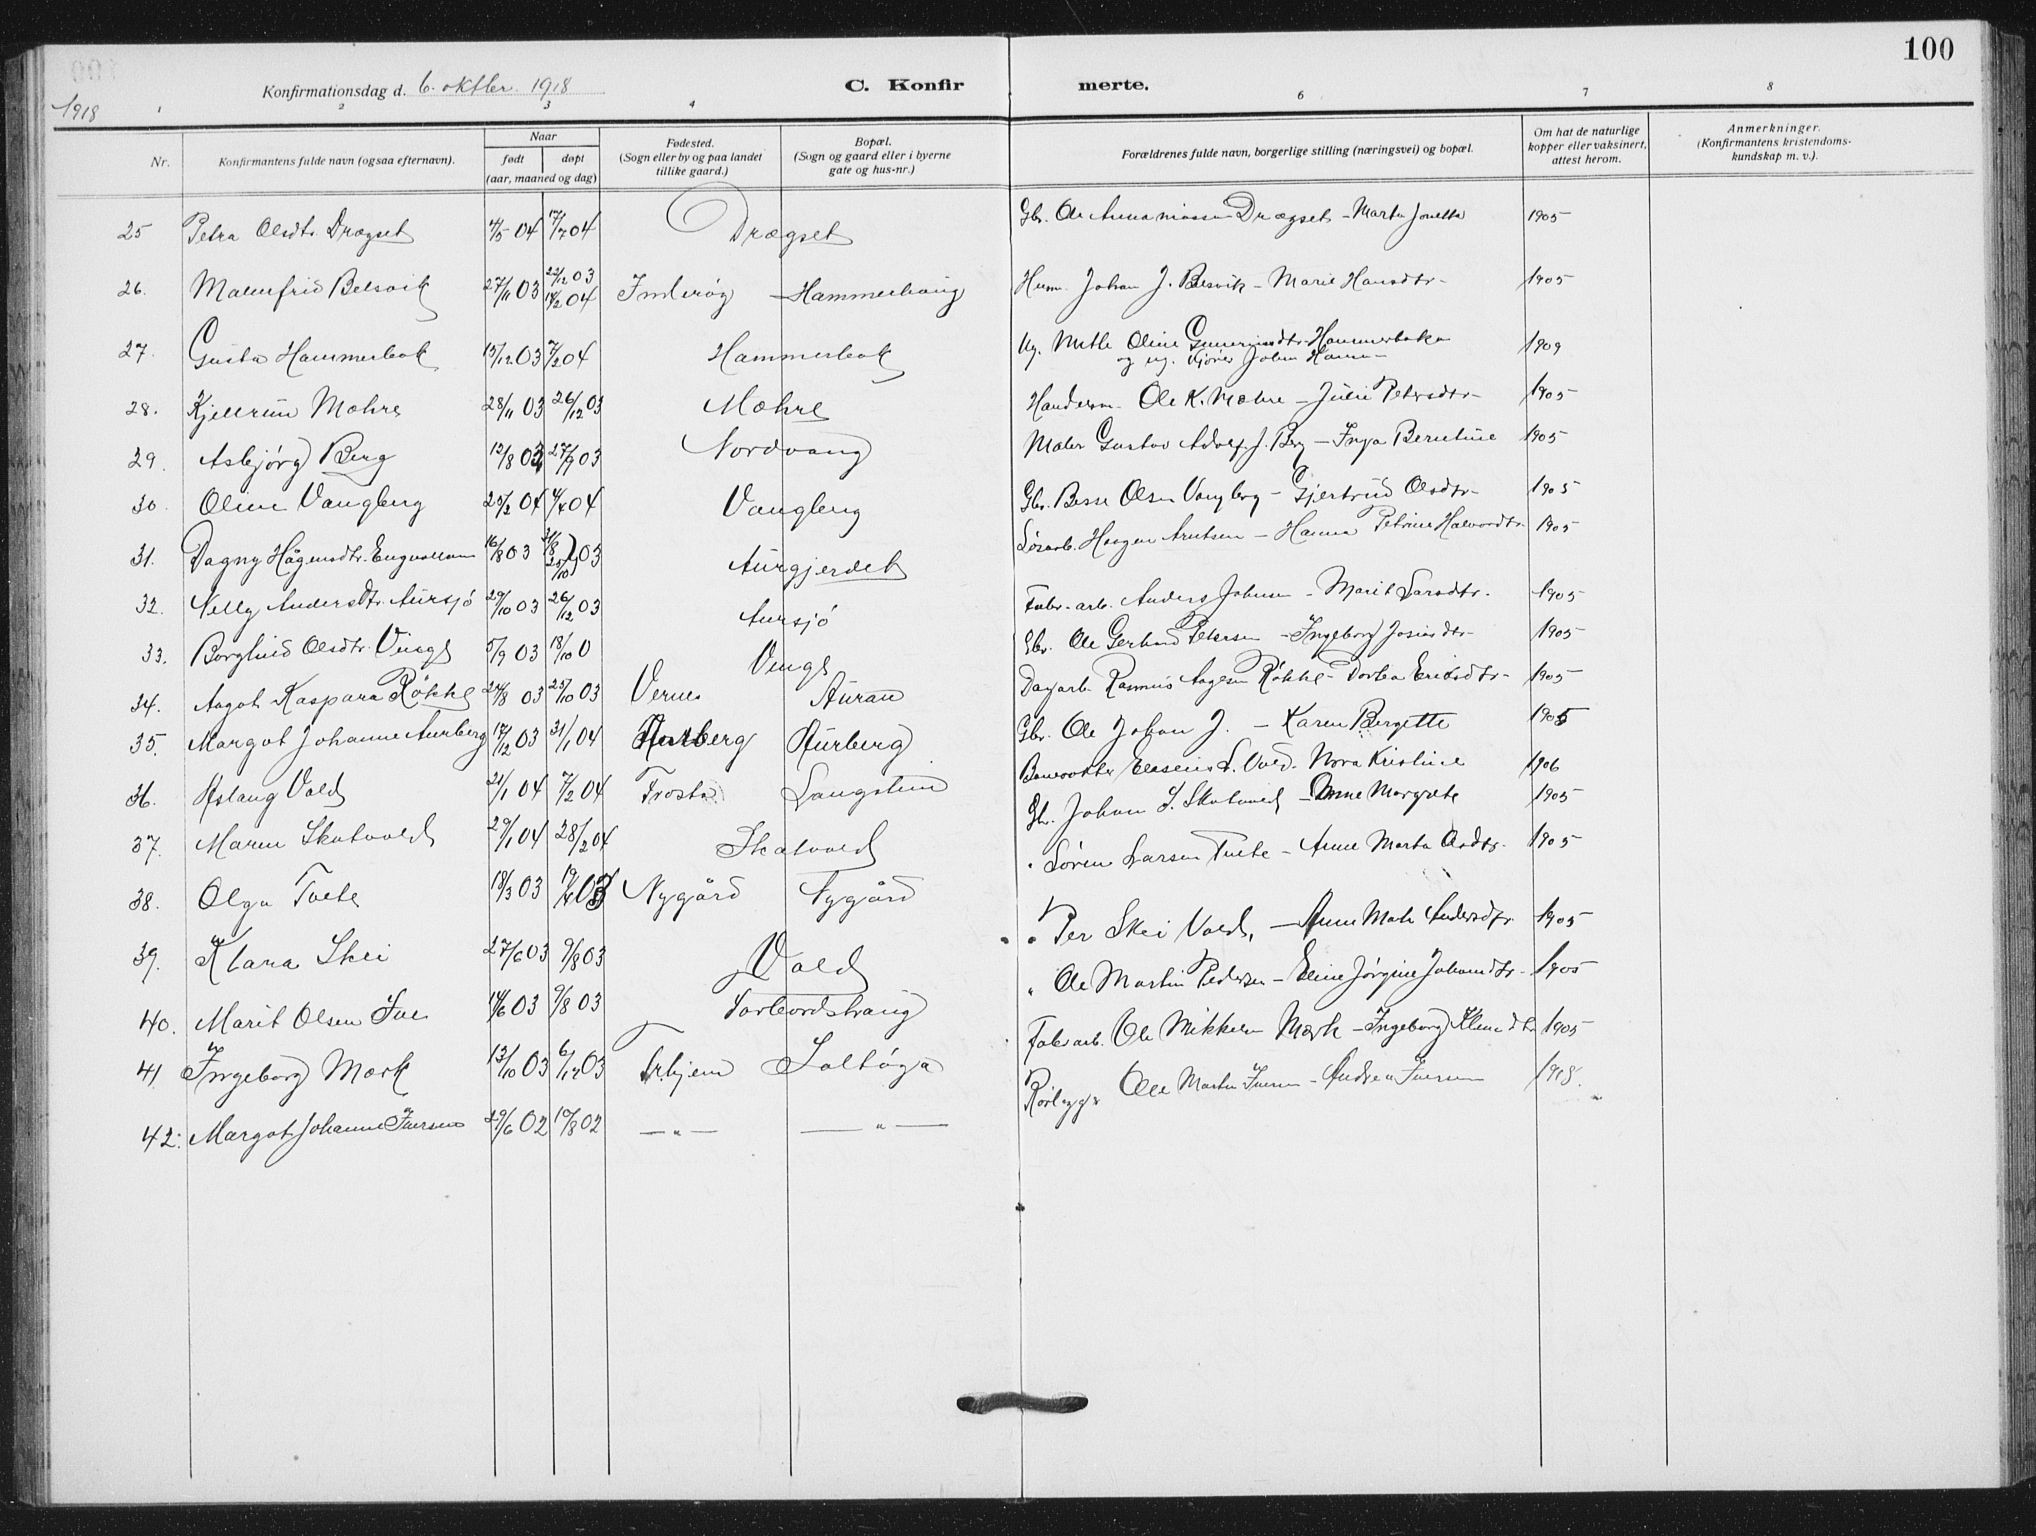 100
Konfirmationsdag d. 6. oktber. 1918
C. Konfir merte.
1918
1 2 3 4 6 7 8
Nr.
Konfirmantens fulde navn (ogsaa efternavn).
Naar
født døpt
(aar, maaned og dag)
Fødested.
(Sogn eller by og paa landet
tillike gaard.)
Bopæl.
(Sogn og gaard eller i byerne
gate og hus-nr.)
Forældrenes fulde navn, borgerlige stilling (næringsvei) og bopæl.
Om hat de naturlige
kopper eller vaksinert,
attest herom.
Anmerkninger.
(Konfirmantens kristendoms-
kundskap m. v.).
25 Petra Olsdtr. Drægset 4/5 04 17/7 04 Drægset Gbr. Ole Drægset - Marta Jonetta 1905
26. Malmfrid Belsvik 27/11 03 22/12 03 14/2 04 Inderøy Hammerhaug Husm. Johan J. Belsvik - Marie Hansdtr - 1905
27. Gusta Hammerbak 15/12 03 7/2 04 Hammerbak Ug. Mette Oline Guneriusdtr. Hammerbakn
og ug. Johan 1909
28. Kjellrun Mæhre 28/11 03 26/12 03 Mæhre Handelsm. Ole K. Mæhre - Julie Petersdtr - 1905
29. Asbjørg Berg 12/8 03 27/9 03 Nordvang Maler Gustav Adolf J. Berg - Inga Berntine 1905
30 Oline Vangberg 25/2 04 4/4 04 Vangberg Gbr. Besse Olsen Vangberg - Gjertrud Olsdtr - 1905
31. Dagny Hågensdtr. 16/8 03 03 Aurgjerdet Løsarb. Haagen Arntsen - Hanna Petrine Halvordtr. 1905
32. Nelly Andersdtr. Aursjö 29/10 03 26/12 03 Aursjö Fabr. arb. Anders Johnsen - Marit Larsdtr. 1905
33. Borghild Olsdtr. Vinge 5/9 03 18/10 0 Vinge Gbr. Ole Gerhard Petersen - Ingeborg 1905
34. Aagot Kaspara Røkke 24/8 03 25/10 03 Vernes Auran Dagarb. Rasmus Aagesen Røkke - Dortea Eriksdtr - 1905
35. Margot Johanne Aurberg 17/12 03 31/1 04 Aurberg Aurberg Gbr. Ole Johan J. - Karen Bergette 1905
36. Aslaug Vold 21/1 04 7/2 04 Frosta Langstein Banevokter Elesens L. Vold. Nora Kristine 1906
37. Maren Skatvold 29/1 04 28/2 04 Skatvold Gbr. Johan L. Skatvold - Anne Margrete 1905
38. Olga Tvete 18/3 03 19/4 03 Nygård Nygård " Sören Larsen Tvete - Anne Marta Olsdtr. 1905
39. Klara Skei 27/6 03 9/8 03 Vold " Per Skei Vold, - Anne Mate Andersdtr. 1905
40. Marit Olsen 14/6 03 9/8 03 " Ole Martin Pedersen - Eline Jørgine Johansdtr - 1905
41 Ingeborg Mærk 13/10 03 6/12 03 Trhjem Saltöya Fabr arb. Ole Mikkelsen Mærk - Ingeborg 1905
42. Margot Johanne Iversen 29/6 02 10/8 02 — " — — " — Rörlegger Ole Martin Iversen - Andrea Iversen 1918.